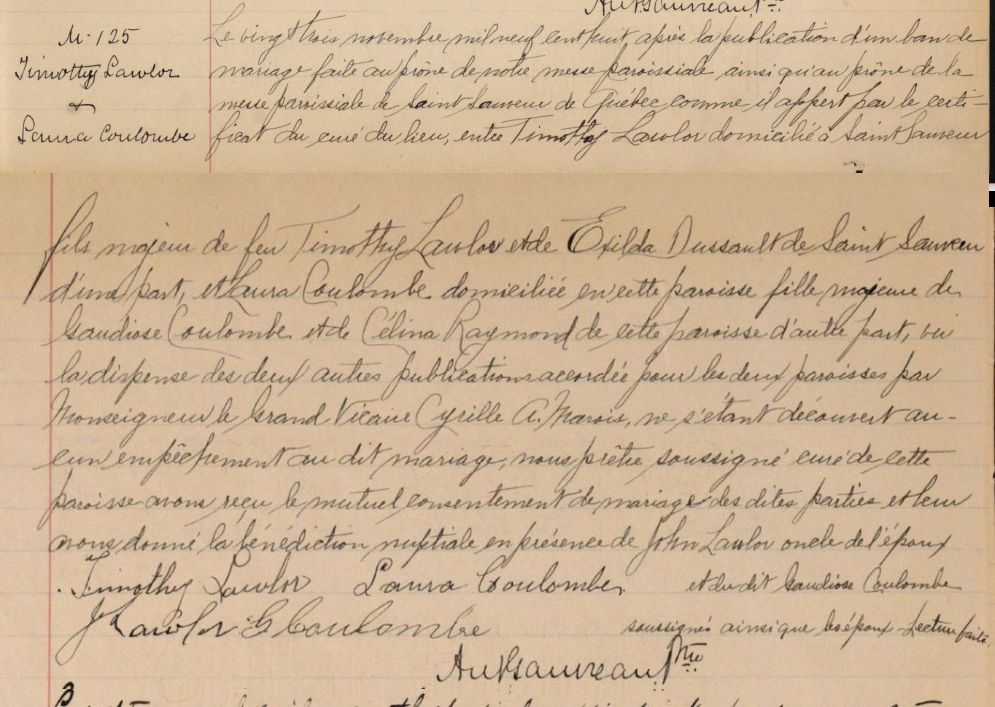 M. 125
Timothy Lawlor
&
Laura Coulombe
Le vingt trois novembre mil neuf cent huit après la publication d'un ban de
mariage faite au prône de notre messe paroissiale ainsi qu'au prône de la
messe paroissiale de Saint Sauveur de Québec comme il appert par le certi-
ficat du curé du lieu, entre Timothy Lawlor domicilié à Saint Sauveur
fils majeur de feu Timothy Lawlor et de Exilda Dussault de Saint Sauveur
d'une part, et Laura Coulombe domiciliée en cette paroisse fille majeure de
Gaudiose Coulombe et de Célina Raymond de cette paroisse d'autre part, vu
la dispense des deux autres publications accordée pour les deux paroisses par
Monseigneur le Grand Vicaire Cyrille A. Marois, ne s'étant découvert au-
cun empêchement au dit mariage, nous prêtre soussigné curé de cette
paroisse avons reçu le mutuel consentement de mariage des dites parties et leur
avons donné la bénédiction nuptiale en présence de John Lawlor oncle de l'époux
et du dit Gaudiose Coulombe
soussignés ainsi que les époux. Lecture faite.
Timothy Lawlor Laura Coulombe
J Lawlor G Coulombe
Ptre